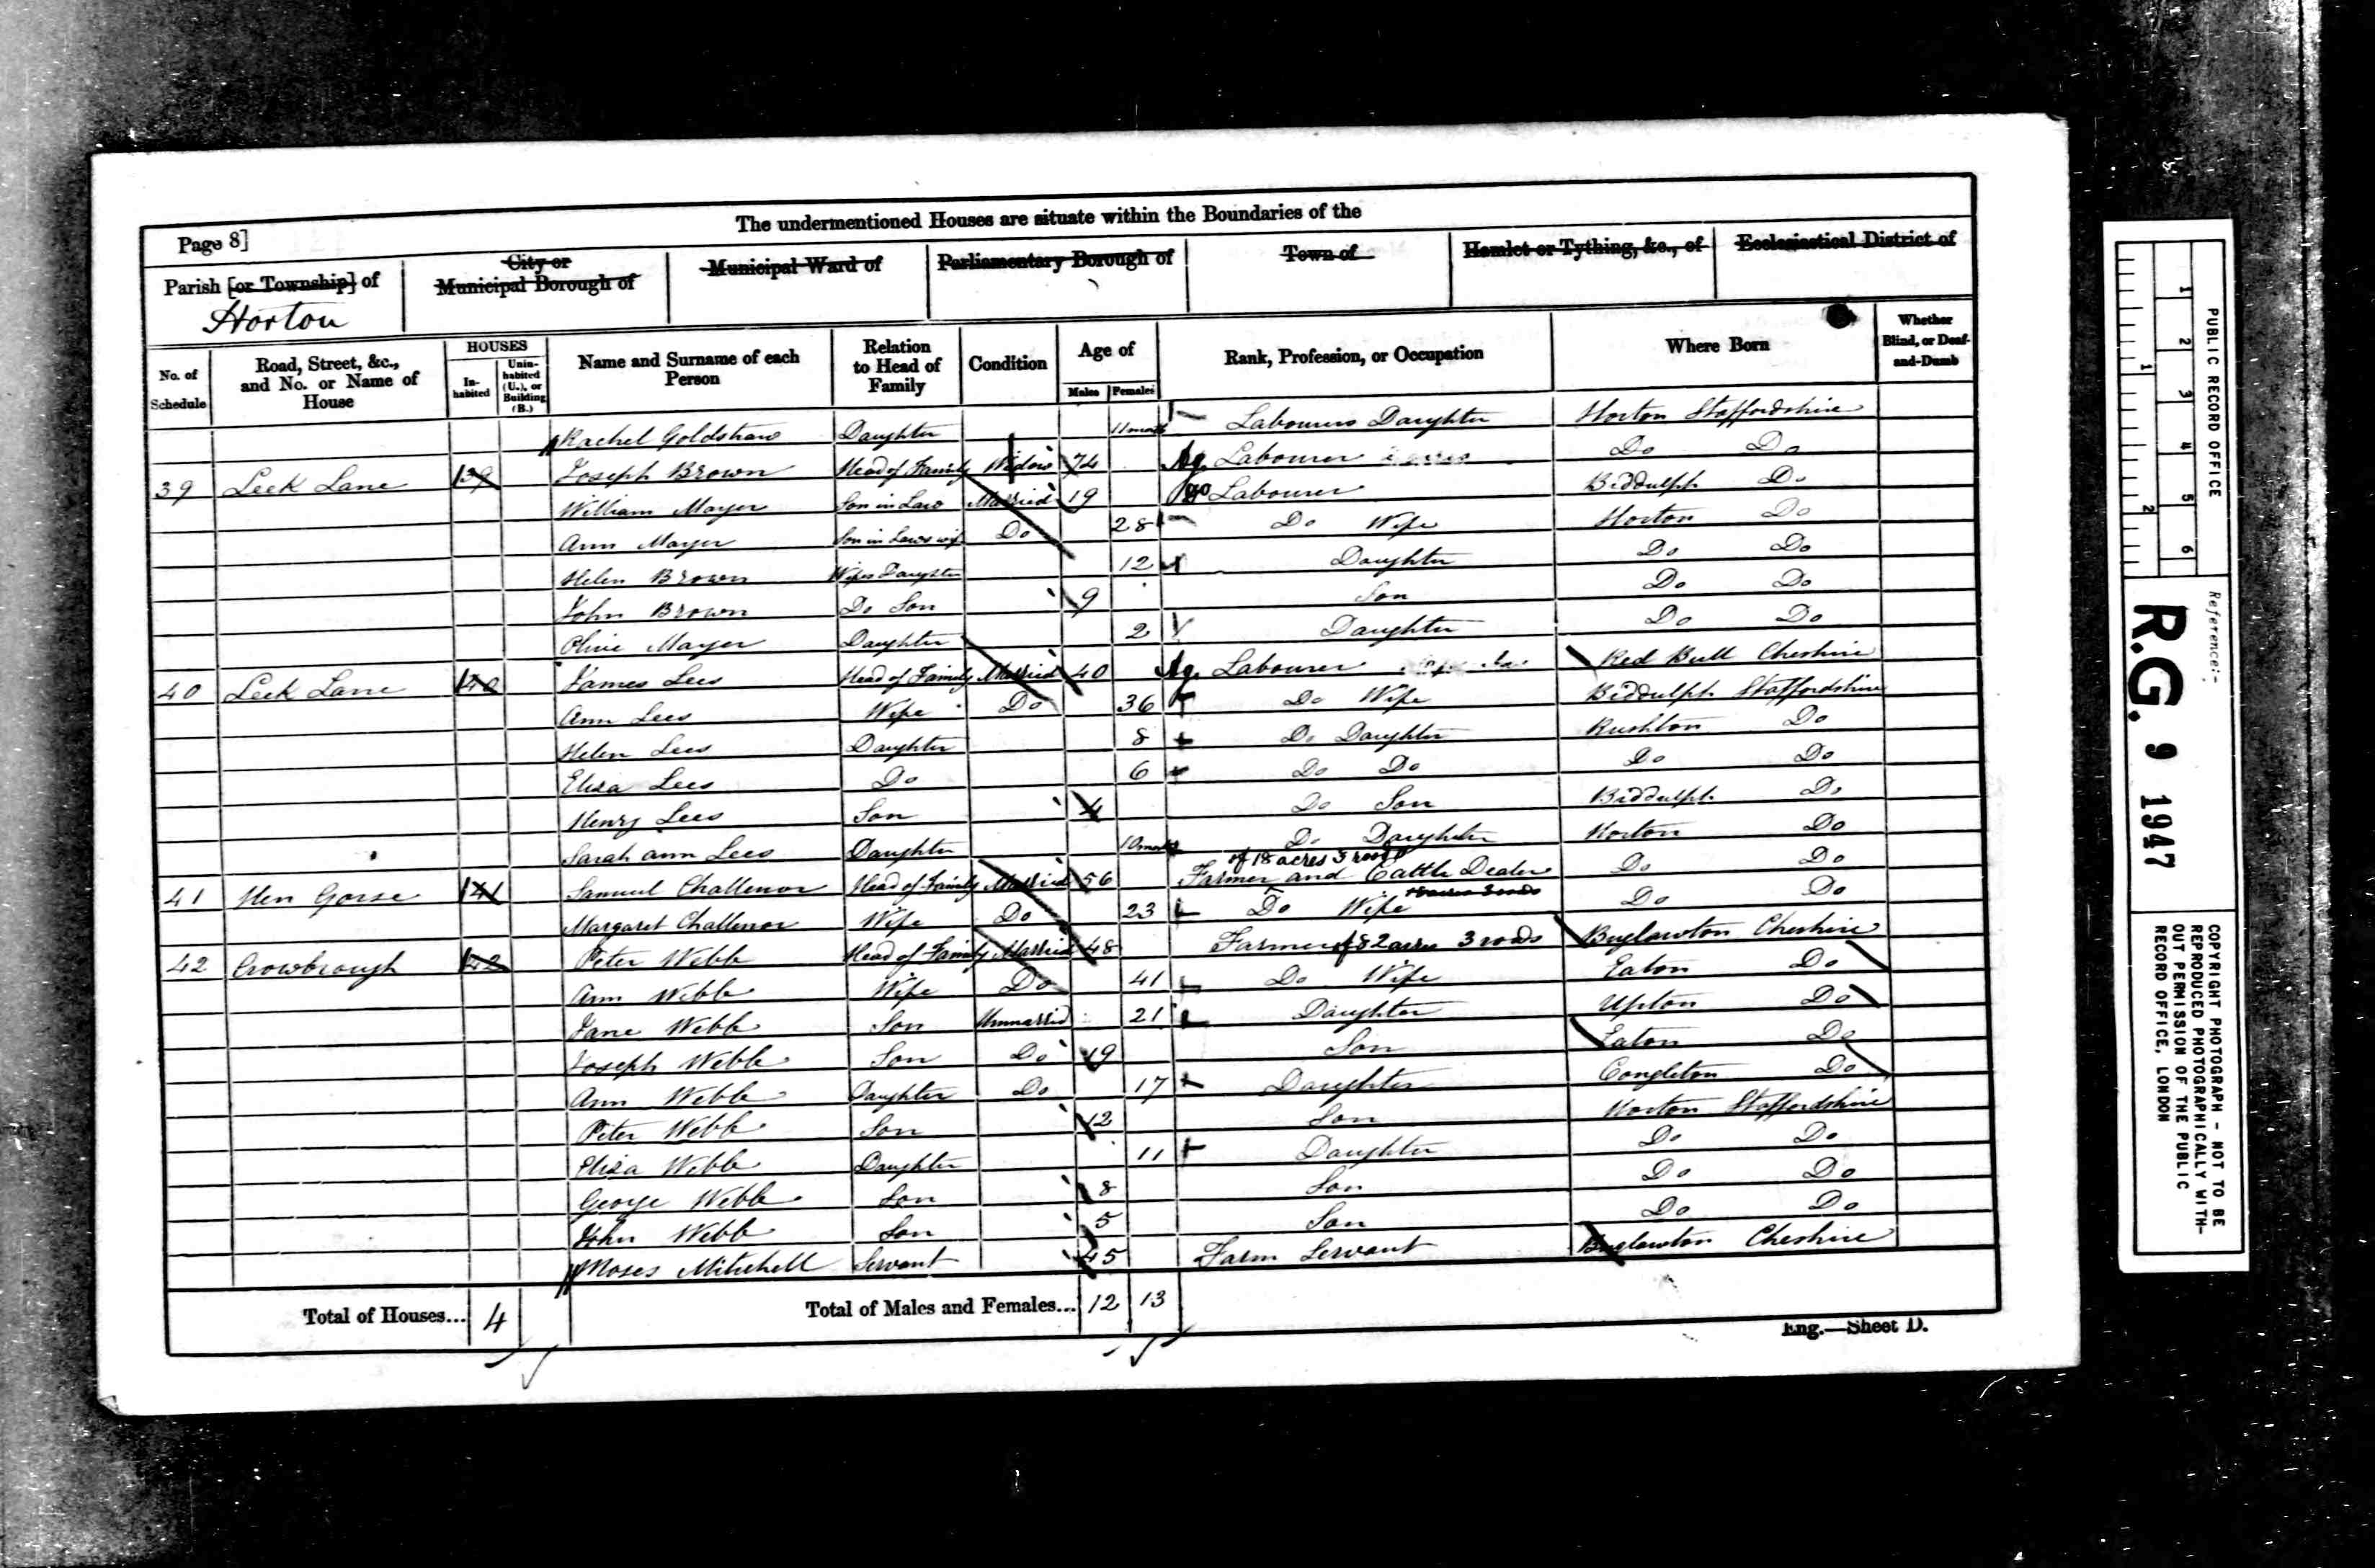 The undermentioned Houses are situate within the Boundaries of the
Page 8]
Parish [or Township] of
Horton
City or
Municipal Borough of
Municipal Ward of
Parliamentary Borough of
Town of
Hamlet or Tything, &c., of
Ecclesiastical District of
No. of Schedule
Road, Street, &c., and No. or Name of House
HOUSES
In-habited
Unin-habited (U.), or Building (B.)
Name and Surname of each Person
Relation to Head of Family
Condition
Age of
Males
Females
Rank, Profession, or Occupation
Where Born
Whether Blind, or Deaf-and-Dumb
Rachel Goldstraw Daughter 11 months Labourers Daughter Horton Staffordshire
39 Leek Lane 1 Joseph Brown Head of Family Widow 74 Ag. Labourer Do Do
William Mayer Son in Law Married 19 Labourer Biddulph Do
Ann Mayer Son in Laws wife Do 28 Do Wife Horton Do
Helen Brown Wifes Daughter 12 Daughter Do Do
John Brown Do Son 9 Son Do Do
Olive Mayer Daughter 2 Daughter Do Do
40 Leek Lane 1 James Lees Head of Family Married 40 Ag. Labourer Red Bull Cheshire
Ann Lees Wife Do 36 Do Wife Biddulph Staffordshire
Helen Lees Daughter 8 Do Daughter Rushton Do
Eliza Lees Do 6 Do Do Do Do
Henry Lees Son 4 Do Son Biddulph Do
Sarah ann Lees Daughter 10 months Do Daughter Horton Do
of 18 acres 3 roods
41 Hen Gorse 1 Samuel Challenor Head of Family Married 56 Farmer and Cattle Dealer Do Do
Margaret Challenor Wife Do 23 Do Wife 18 acres 3 roods Do Do
42 Crowbrough 1 Peter Webb Head of Family Married 48 Farmer of 82 acres 3 roods Buglawton Cheshire
Ann Webb Wife Do 41 Do Wife Eaton Do
Jane Webb Son Unmarried 21 Daughter Upton Do
Joseph Webb Son Do 19 Son Eaton Do
Ann Webb Daughter Do 17 Daughter Congleton Do
Peter Webb Son 12 Son Horton Staffordshire
Eliza Webb Daughter 11 Daughter Do Do
George Webb Son 8 Son Do Do
John Webb Son 5 Son Do Do
Moses Mitchell Servant 45 Farm Servant Buglawton Cheshire
Total of Houses... 4
Total of Males and Females... 12 13
Eng.—Sheet D.
PUBLIC RECORD OFFICE
1 2 3 4 5 6
1 2
Reference:-
R.G. 9 1947
COPYRIGHT PHOTOGRAPH - NOT TO BE
REPRODUCED PHOTOGRAPHICALLY WITH-
OUT PERMISSION OF THE PUBLIC
RECORD OFFICE, LONDON